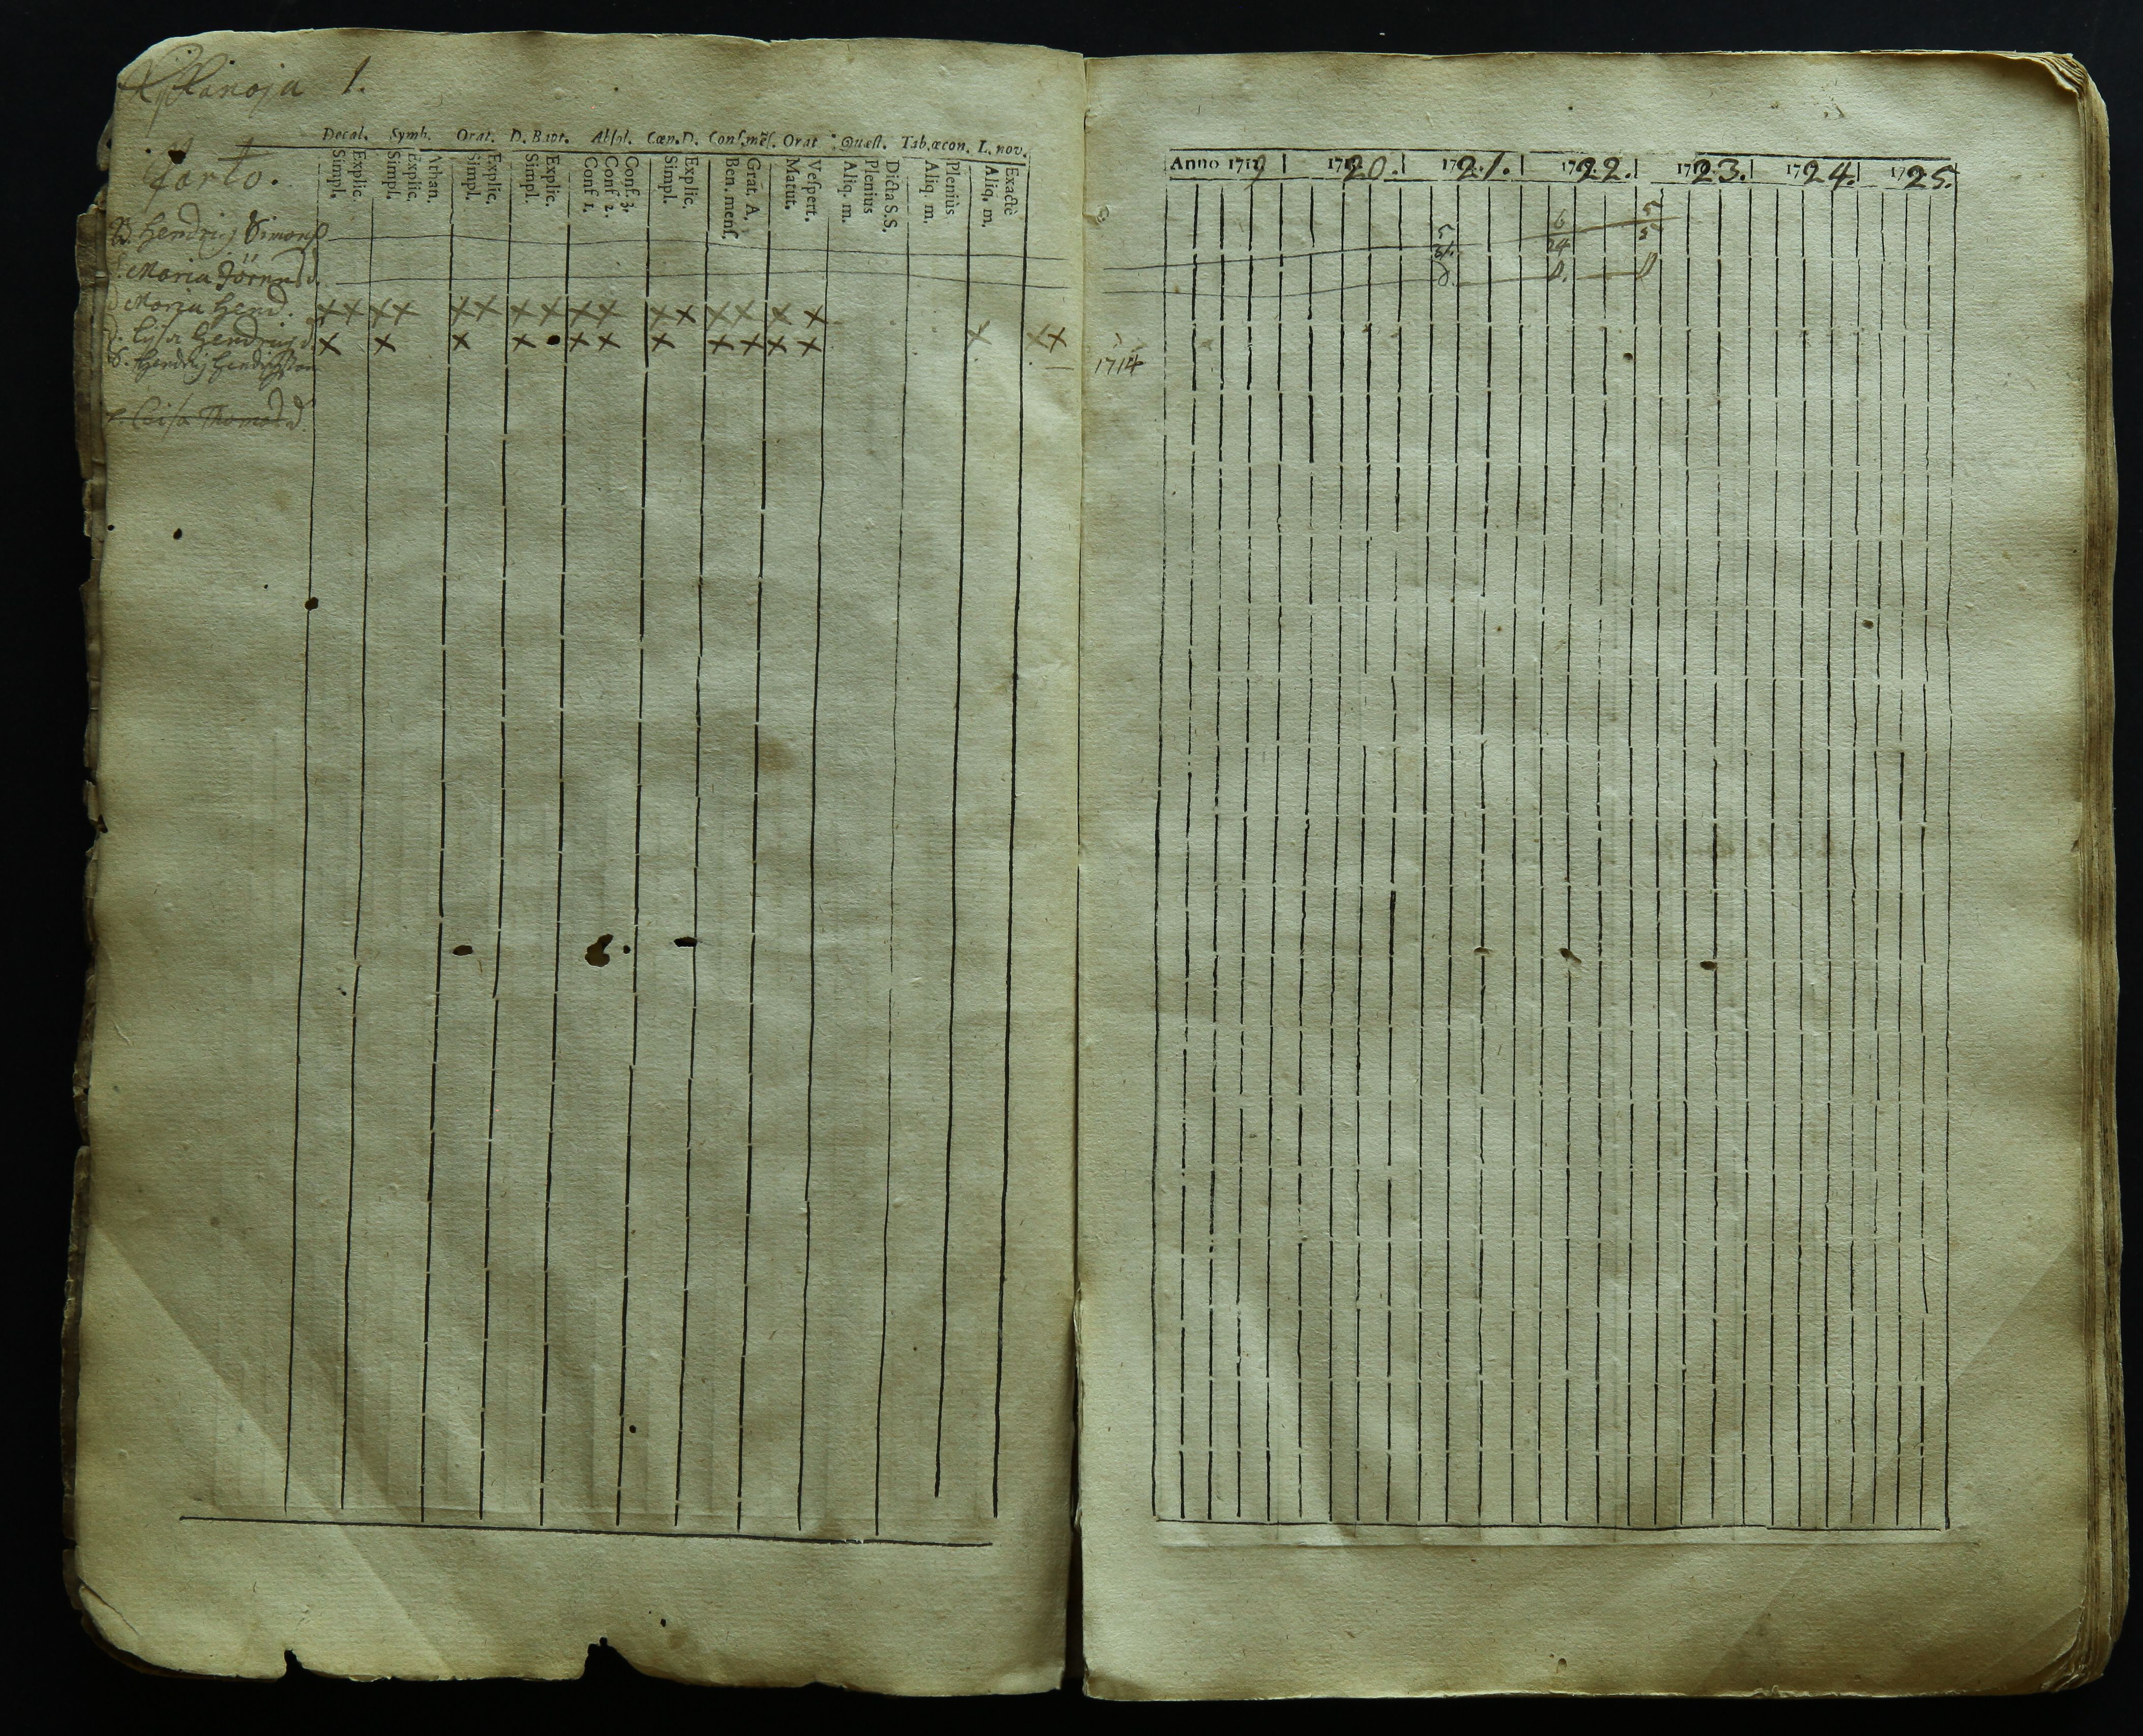 Kyllänoja 1.
Torto.
Decal. Symb. Orat. D. Bapt. Absol. Cœn. D. Conf. mēs. Orat. Quæst. Tab. œcon. L. nov.
Simpl. Explic. Simpl. Explic. Athan. Simpl. Explic. Simpl. Explic. Conf 1. Conf 2. Conf 3. Simpl. Explic. Ben. mens. Grat. A. Matut. Vespert. Aliq. m. Plenius Dicta S.S. Aliq. m. Plenius Aliq. m. Exactè
B. Hendrij Simonß
Maria Jörensd.
D. Maria Hend. x x x x x x x x x x x x x x x x
Lysa Hendrijsd. x x x x x x x x x x x x x x
S. Hendrij Hendrichsson 1714
Caisa Thomasd.
Anno 1719 1720. 1721. 1722. 1723. 1724. 1725.
6 5
24 5